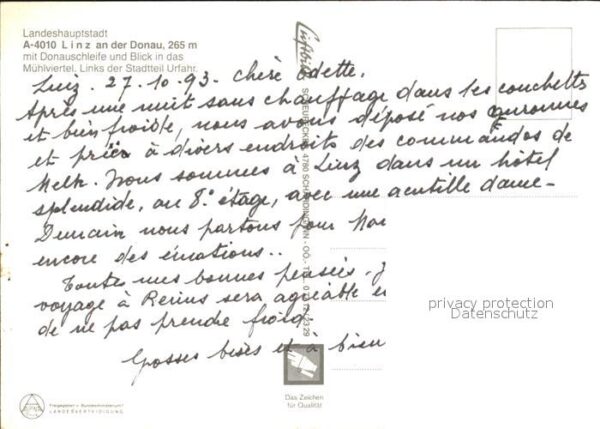 Landeshauptstadt
A-4010 Linz an der Donau, 265 m
mit Donauschleife und Blick in das
Mühlviertel. Links der Stadtteil Urfahr.
Linz. 27.10.93. Chère Odette.
Après une nuit sans chauffage dans les couchettes
et bien froide, nous avons déposé nos couronnes
et prié à divers endroits des commandos de
Melk. Nous sommes à Linz dans un hôtel
splendide, au 8° étage, avec une gentille dame-
Demain nous partons pour
encore des émotions..
Toutes mes bonnes pensées.
voyage à Reims sera agréable et
de ne pas prendre froid
Grosses bises et à bien
privacy protection
Datenschutz
Das Zeichen
für Qualität
LANDESVERTEIDIGUNG